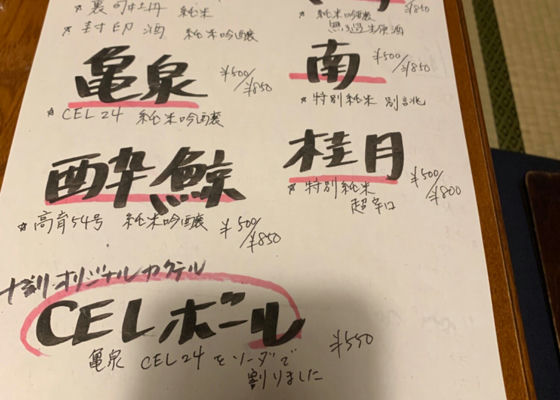 純米
封印酒 純米吟醸
亀泉 ¥500/¥850
☆CEL24 純米吟醸
酔鯨
☆高育54号 純米吟醸 ¥500/¥850
純米吟醸
¥850
南 ¥500/¥850
☆特別純米
桂月 ¥500/¥800
☆特別純米
超辛口
オリジナルカクテル
CELボール ¥550
亀泉 CEL24をソーダで
割りました